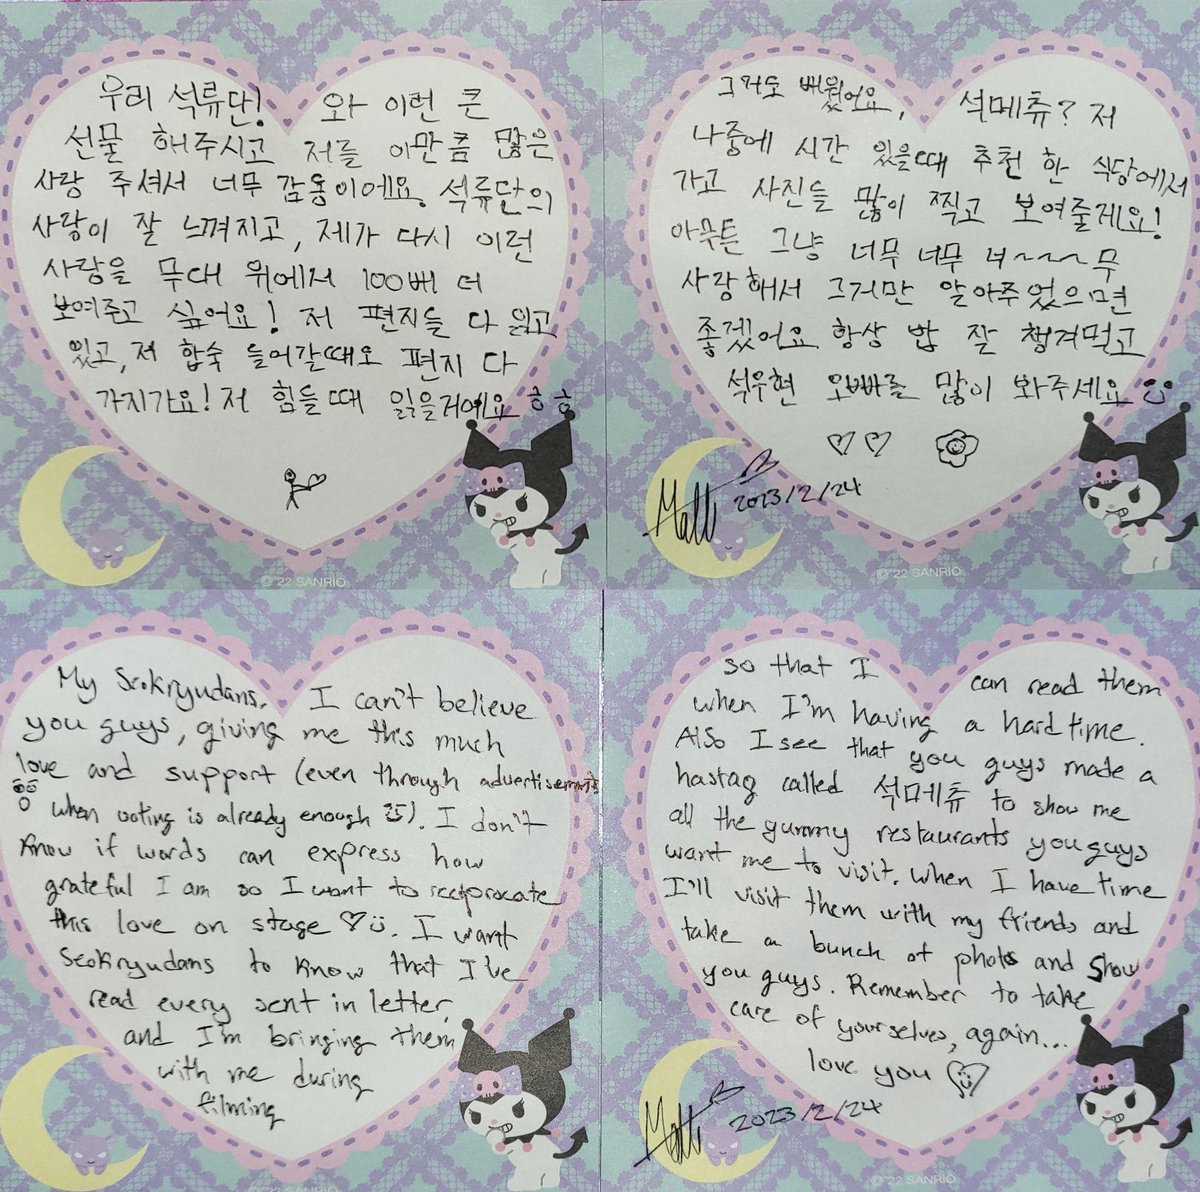 우리 석류단! 와 이런 큰
선물 해주시고 저를 이만큼 많은
사랑 주셔서 너무 감동이에요. 석류단의
사랑이 잘 느껴지고, 제가 다시 이런
사랑을 무대 위에서 100배 더
보여주고 싶어요! 저 편지들 다 읽고
있고, 저 합숙 들어갈때도 편지 다
가지가요! 저 힘들때 읽을거에요 ㅎㅎ
© '22 SANRIO
그거도 배웠어요, 석메츄? 저
나중에 시간 있을때 추천 한 식당에서
가고 사진들 많이 찍고 보여줄게요!
아무튼 그냥 너무 너무 너~~~무
사랑해서 그거만 알아주었으면
좋겠어요 항상 밥 잘 챙겨먹고
석우현 오빠를 많이 봐주세요
Matt 2023/2/24
© '22 SANRIO
My Seokryudans, I can't believe
you guys, giving me this much
love and support (even through advertisements
when voting is already enough). I don't
know if words can express how
grateful I am so I want to reciprocate
this love on stage ♡. I want
Seokryudans to know that I've
read every sent in letter,
and I'm bringing them
with me during
filming
© '22 SANRIO
so that I can read them
when I'm having a hard time.
Also I see that you guys made a
hastag called 석메츄 to show me
all the yummy restaurants you guys
want me to visit. When I have time
I'll visit them with my friends and
take a bunch of photos and show
you guys. Remember to take
care of yourselves, again...
love you
Matt 2023/2/24
© '22 SANRIO